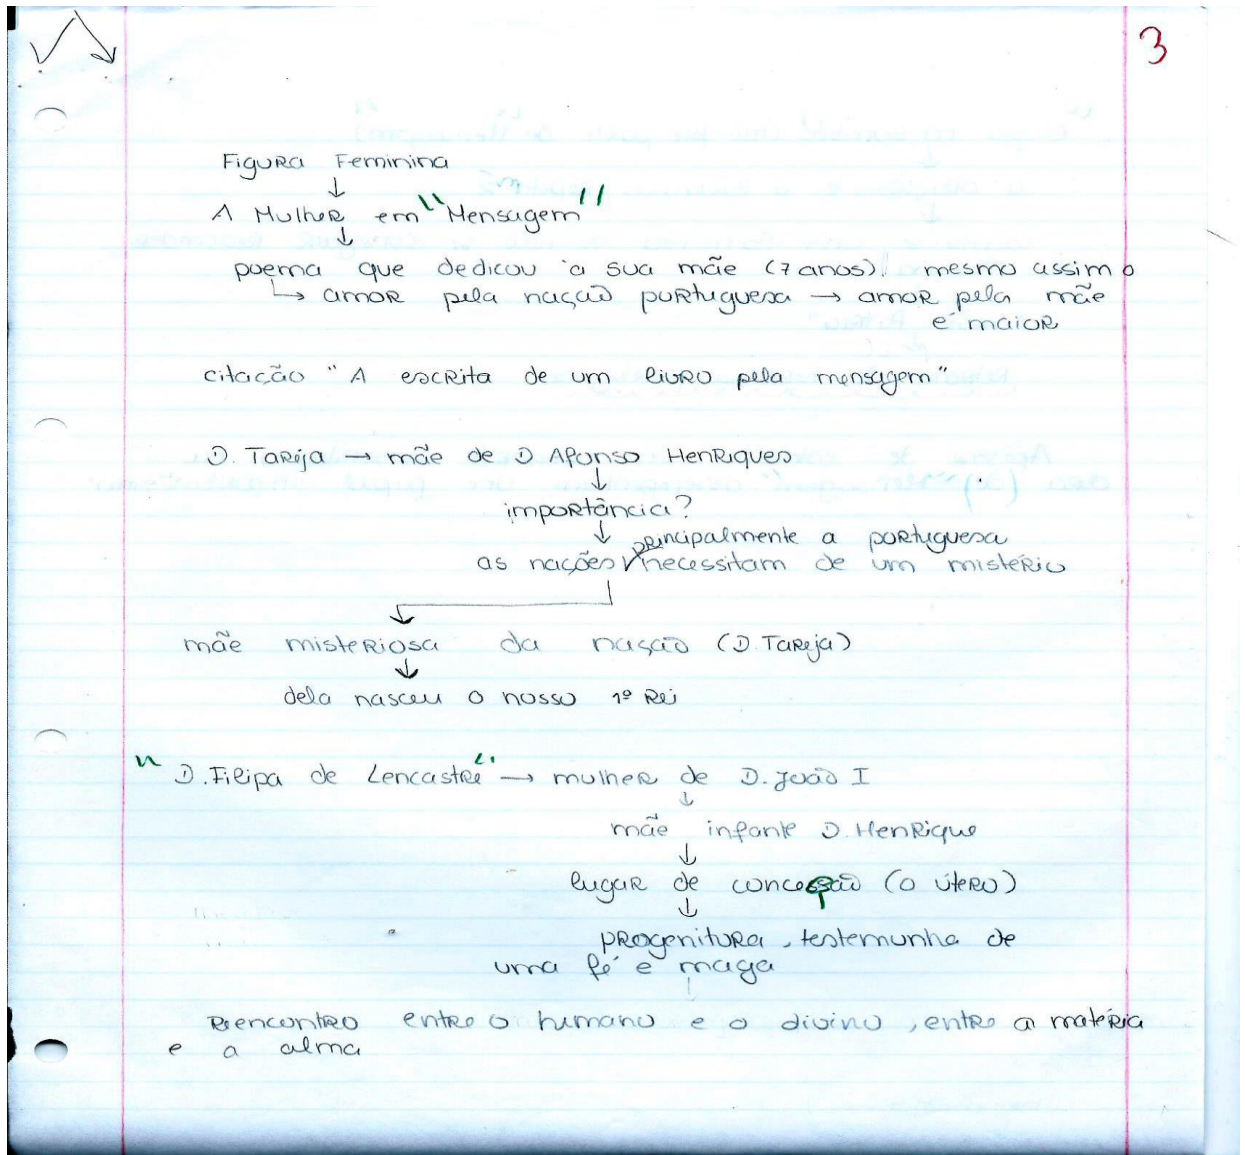 3
Figura Feminina
↓
A Mulher em "Mensagem"
↓
poema que dedicou à sua mãe (7 anos). mesmo assim o
↳ amor pela nação portuguesa → amor pela mãe
é maior
citação "A escrita de um livro pela mensagem"
D. Tareja → mãe de D Afonso Henriques
↓
importância?
↓ principalmente a portuguesa
as nações necessitam de um mistério
↓
mãe misteriosa da nação (D. Tareja)
↓
dela nasceu o nosso 1º Rei
"D. Filipa de Lencastre" → mulher de D. João I
↓
mãe infante D. Henrique
↓
lugar de concepção (o útero)
↓
progenitura, testemunha de
uma fé e maga
Reencontro entre o humano e o divino, entre a matéria
e a alma